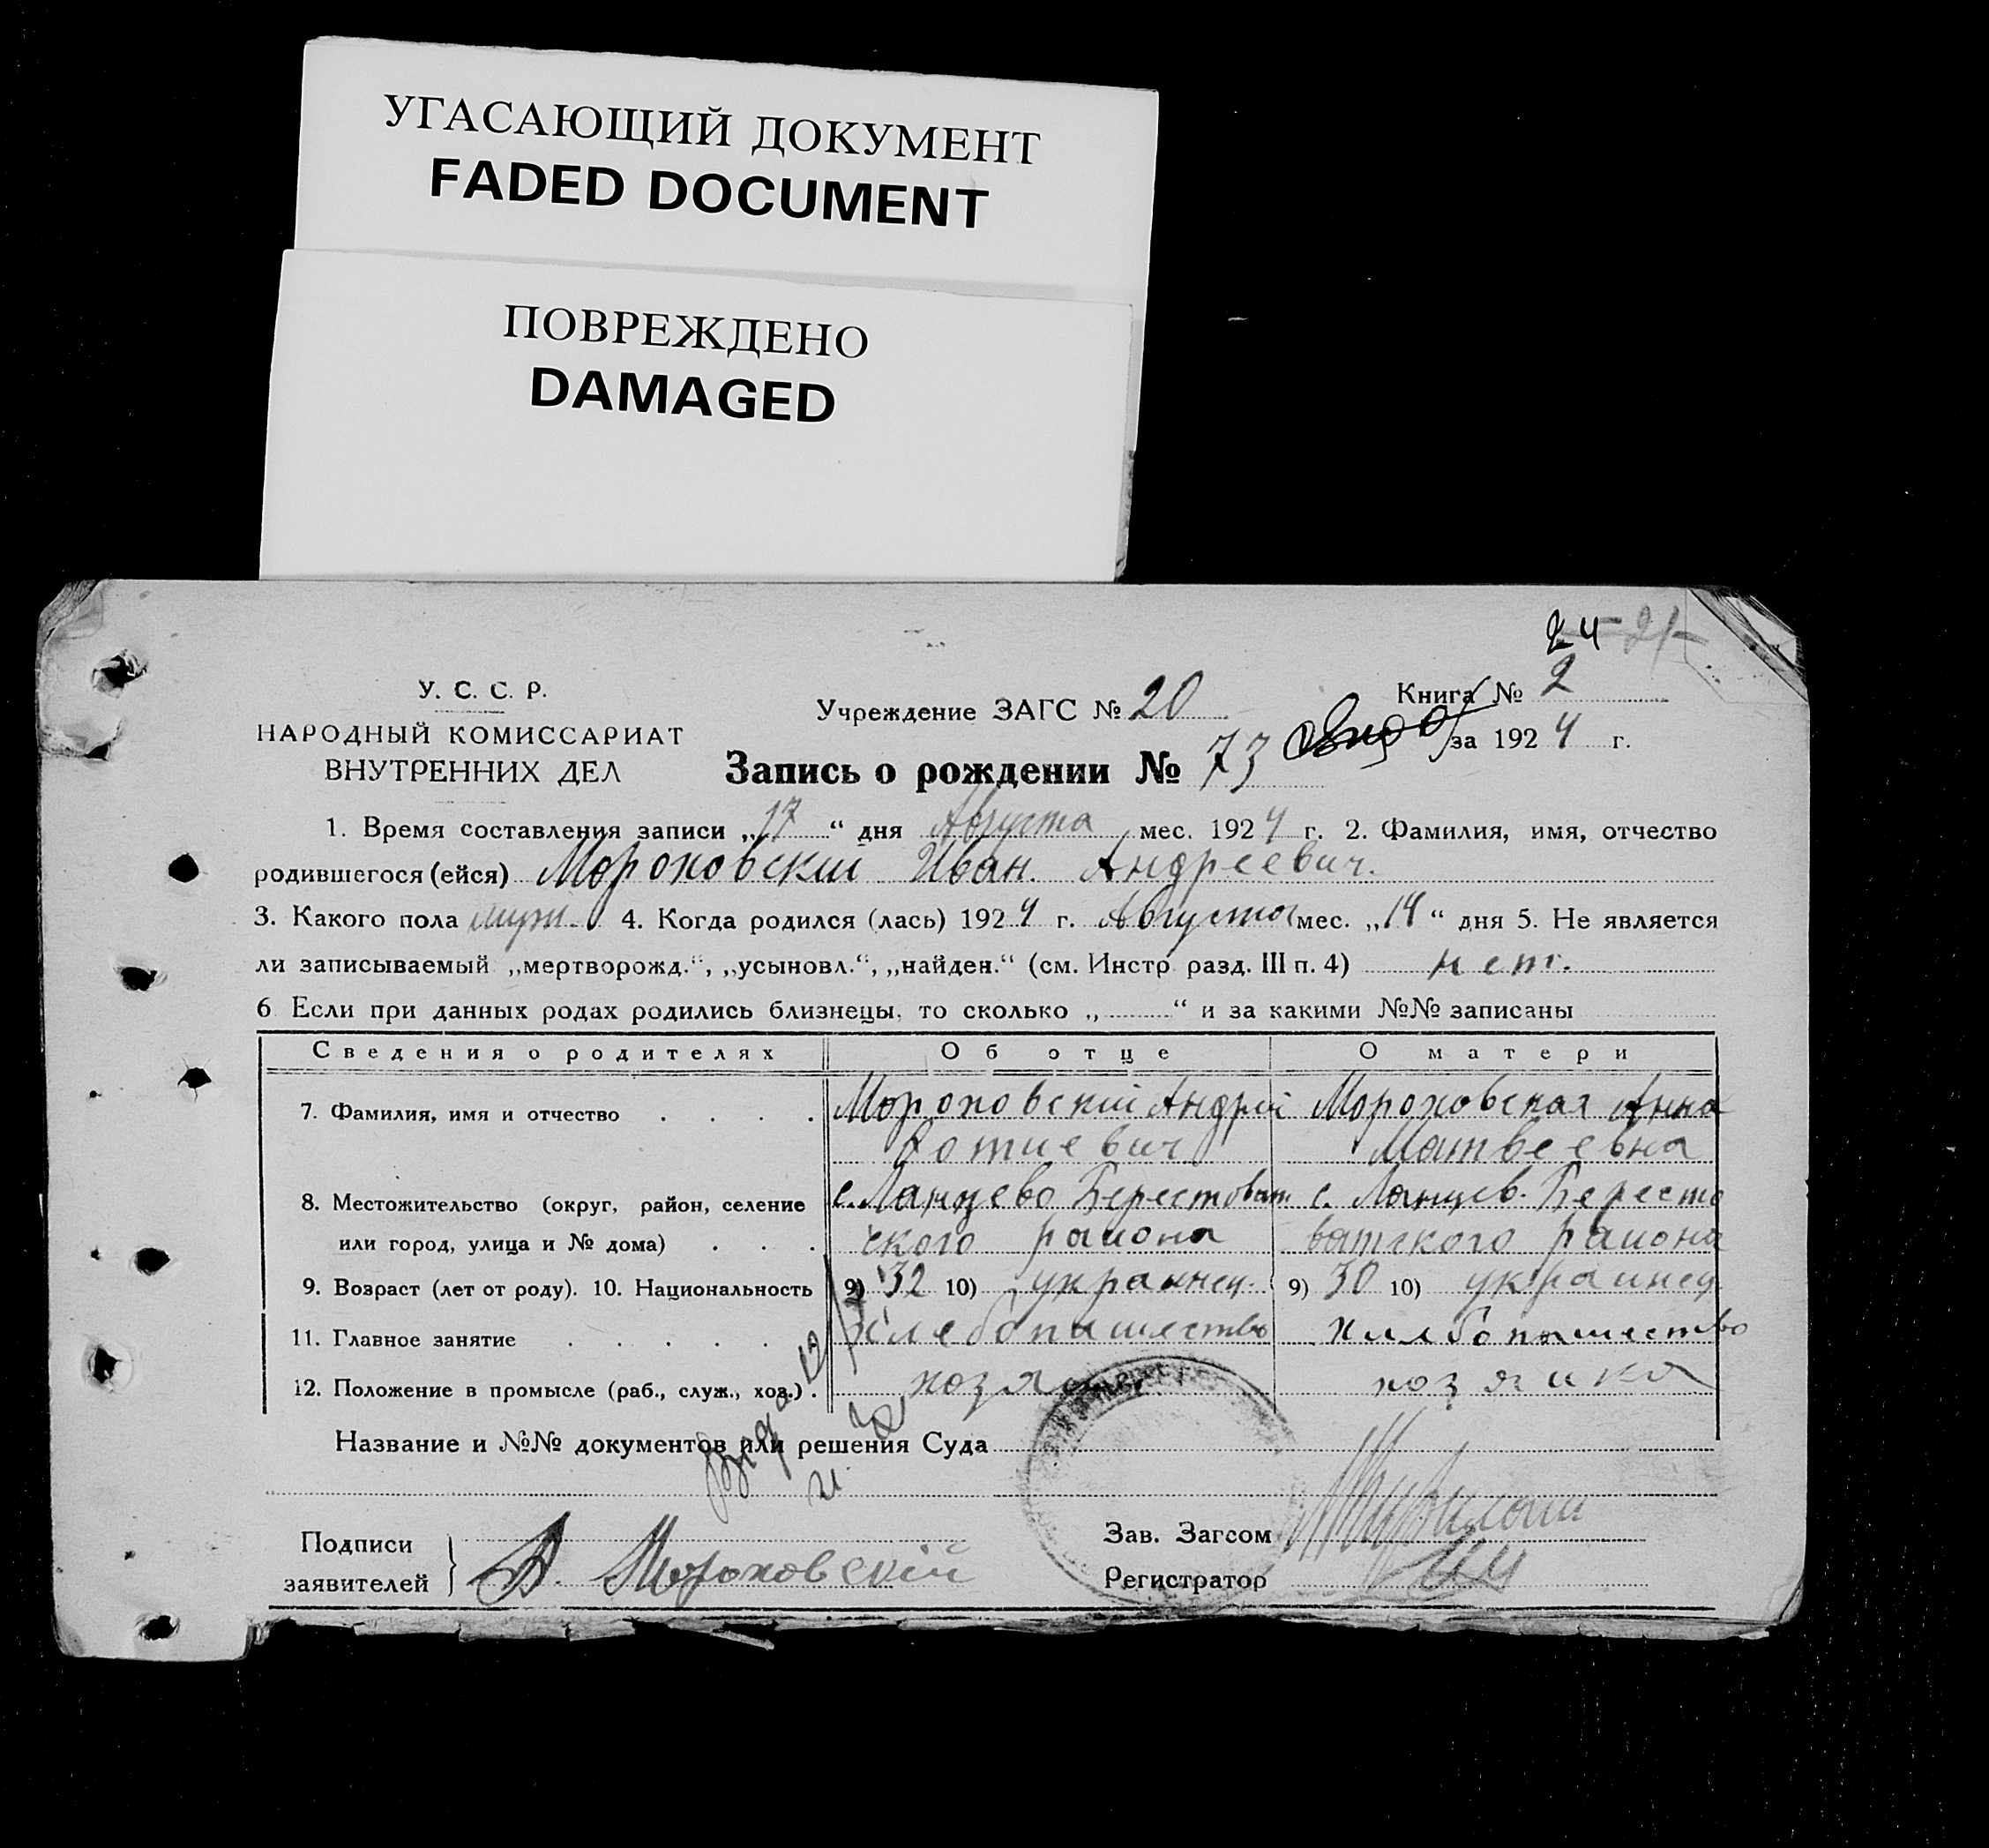 УГАСАЮЩИЙ ДОКУМЕНТ
FADED DOCUMENT
ПОВРЕЖДЕНО
DAMAGED
24 21
У. С. С. Р.
НАРОДНЫЙ КОМИССАРИАТ
ВНУТРЕННИХ ДЕЛ
Учреждение ЗАГС № 20
Книга № 2
за 1924 г.
Запись о рождении № 73
1. Время составления записи „17“ дня Августа мес. 1924 г. 2. Фамилия, имя, отчество
родившегося (ейся) Мороховский Иван. Андреевич.
3. Какого пола муж. 4. Когда родился (лась) 1924 г. Августа мес. „14“ дня 5. Не является
ли записываемый „мертворожд.“, „усыновл.“, „найден.“ (см. Инстр. разд. III п. 4) нет.
6 Если при данных родах родились близнецы, то сколько „ “ и за какими №№ записаны
Сведения о родителях Об отце О матери
7. Фамилия, имя и отчество . . . . Мороховский Андрей Мороховская Анна
Фотиевич Матвеевна
8. Местожительство (округ, район, селение с. Ланцево Берестоват с. Ланцев. Бересто
или город, улица и № дома) . . . ского района ватского района
9. Возраст (лет от роду). 10. Национальность 9) 32 10) украинец. 9) 30 10) украинец
11. Главное занятие . . . . . хлебопашество хлебопашество
12. Положение в промысле (раб., служ., хоз.) . хозяин хозяика
Название и №№ документов или решения Суда
Подписи
заявителей
А. Мороховскій
Зав. Загсом
Регистратор